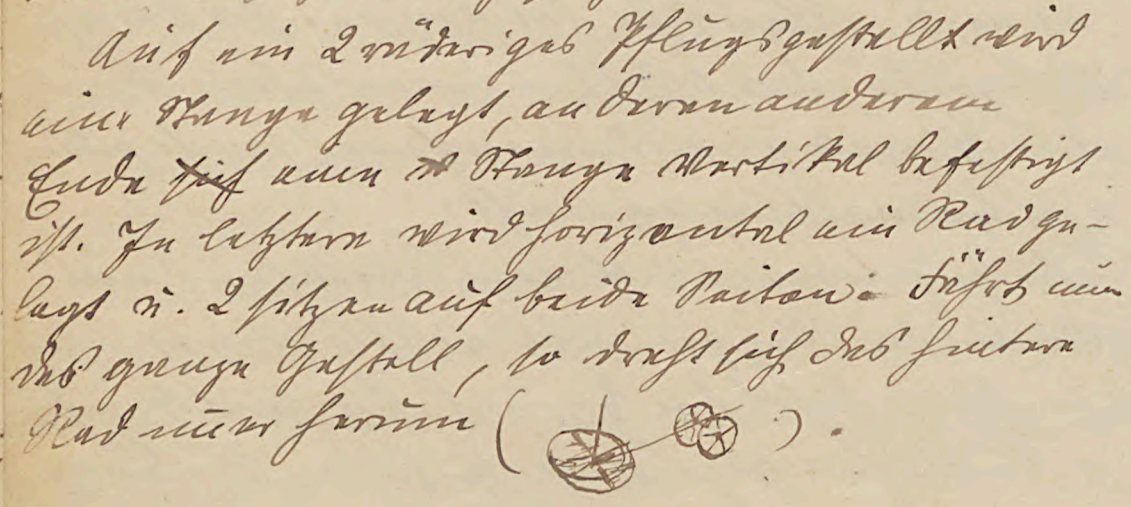 Auf ein 2 räderiges Pflugsgestellt wird
eine Stange gelegt, an deren anderem
Ende sich eine Stange vertikal befestigt
ist. In letztere wird horizontal ein Rad ge-
legt u. 2 sitzen auf beide Seiten. Fährt nun
das ganze Gestell, so dreht sich das hintere
Rad immer herum ( ).